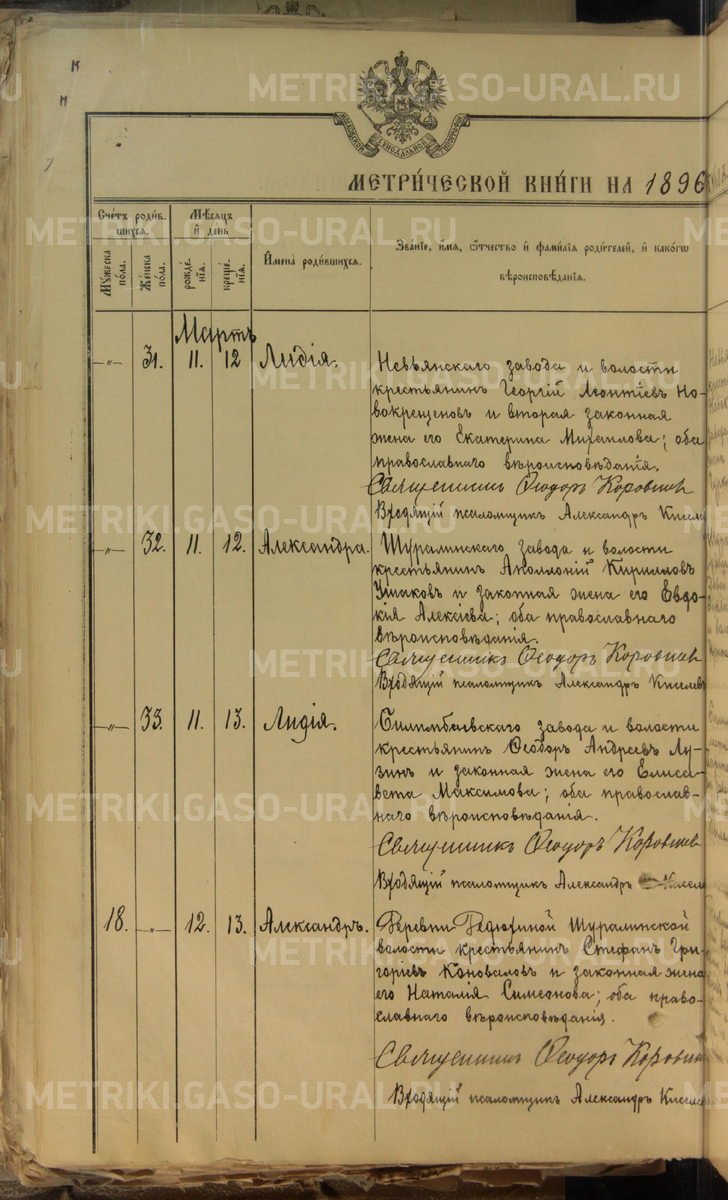 МЕТРИ́ЧЕСКОЙ КНИ́ГИ НА 1896
Сче́тъ роди́в-
шихся.
Му́жеска
по́ла.
Же́нска
по́ла.
Мѣ́сяцъ
и҆ де́нь
рожде́-
нїѧ.
креще́-
нїѧ.
И҆мена̀ роди́вшихся.
Зва́нїе, и҆́мя, ѻ҆́тчество и҆ фами́лїя роди́телей, и҆ како́гѡ
вѣроисповѣ́данїя.
Мартъ
—"— 31. 11. 12 Лидія.
Невьянскаго завода и волости
крестьянинъ Георгій Леонтіевъ Но-
вокрещеновъ и вторая законная
жена его Екатерина Михаилова; оба
православнаго вѣроисповѣданія.
Священникъ Ѳеодоръ Коровинъ
Входящій псаломщикъ Александръ Киселе
—"— 32. 11. 12. Александра.
Шуралинскаго завода и волости
крестьянинъ Аполлоній Кирилловъ
Ушаковъ и законная жена его Евдо-
кія Алексіева; оба православнаго
вѣроисповѣданія.
Священникъ Ѳеодоръ Коровинъ
Входящій псаломщикъ Александръ Киселев
—"— 33. 11. 13. Лидія.
Билимбаевскаго завода и волости
крестьянинъ Ѳеодоръ Андреевъ Лу-
зинъ и законная жена его Елиса-
вета Максимова; оба православ-
наго вѣроисповѣданія.
Священникъ Ѳеодоръ Коровинъ
Входящій псаломщикъ Александръ Кисел
18. —"— 12. 13. Александръ.
Деревни Федюзиной Шуралинской
волости крестьянинъ Стефанъ Гри-
горіевъ Коноваловъ и законная жена
его Наталія Симеонова; оба право-
славнаго вѣроисповѣданія.
Священникъ Ѳеодоръ Коровинъ
Входящій псаломщикъ Александръ Киселе
METRIKI.GASO-URAL.RU